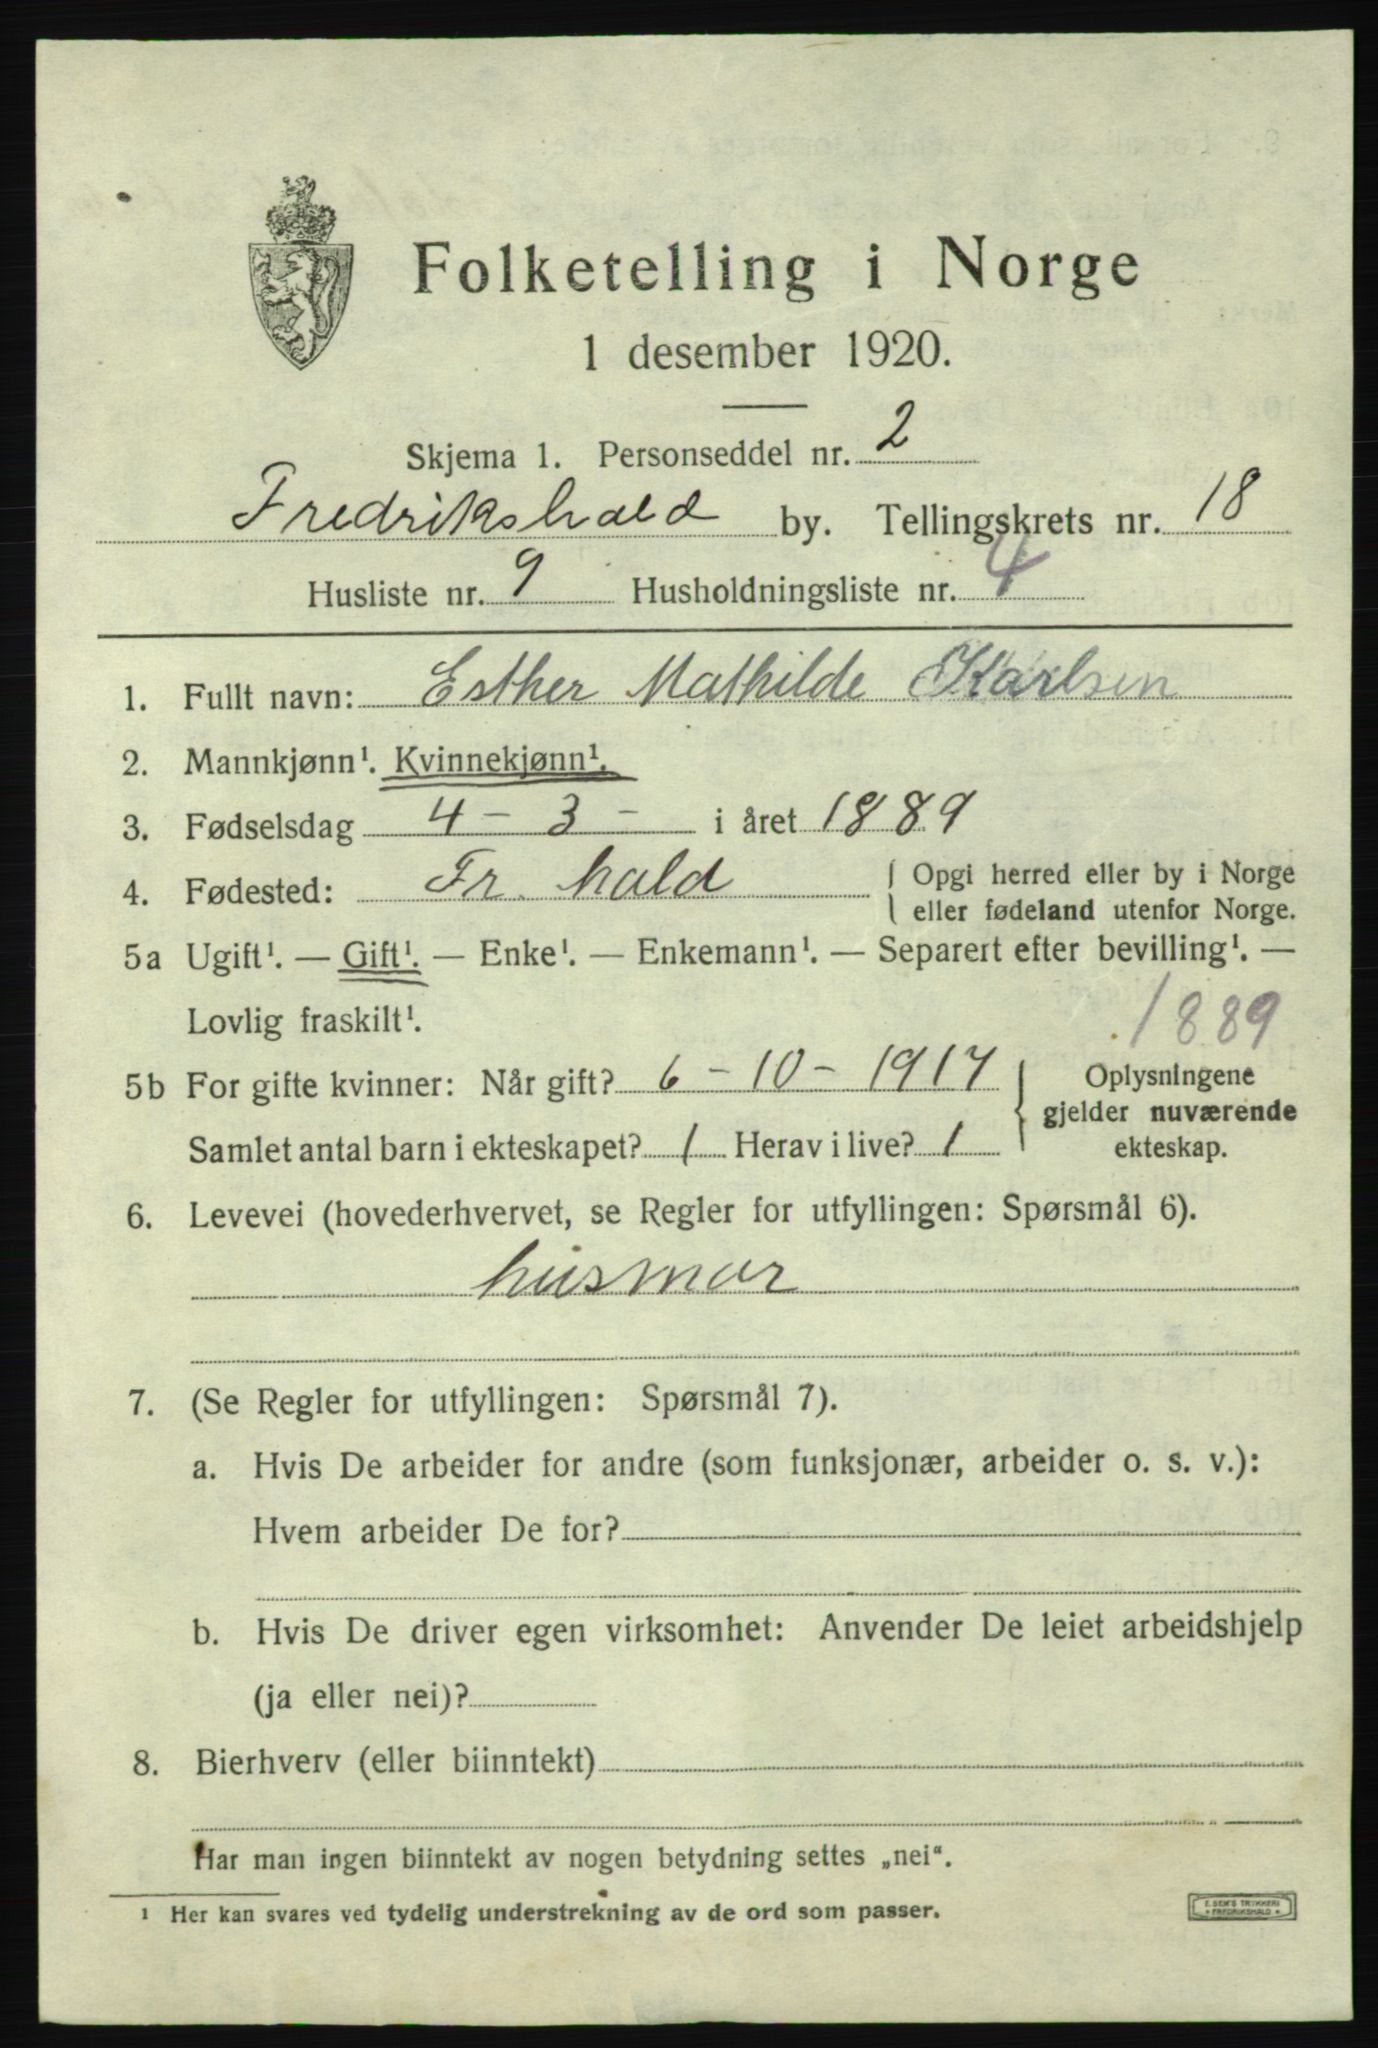 Folketelling i Norge
1 desember 1920.
Skjema 1. Personseddel nr. 2
Fredrikshald by. Tellingskrets nr. 18
Husliste nr. 9 Husholdningsliste nr. 4
1. Fullt navn: Esther Mathilde Karlsen
2. Mannkjønn¹. Kvinnekjønn¹.
3. Fødselsdag 4 - 3 - i året 1889
4. Fødested: Fr. hald { Opgi herred eller by i Norge
eller fødeland utenfor Norge.
5a Ugift¹. — Gift¹. — Enke¹. — Enkemann¹. — Separert efter bevilling¹. —
Lovlig fraskilt¹.
1889
5b For gifte kvinner: Når gift? 6 - 10 - 1917 } Oplysningene
gjelder nuværende
Samlet antal barn i ekteskapet? 1 Herav i live? 1 ekteskap.
6. Levevei (hovederhvervet, se Regler for utfyllingen: Spørsmål 6).
husmor
7. (Se Regler for utfyllingen: Spørsmål 7).
a. Hvis De arbeider for andre (som funksjonær, arbeider o. s. v.):
Hvem arbeider De for?
b. Hvis De driver egen virksomhet: Anvender De leiet arbeidshjelp
(ja eller nei)?
8. Bierhverv (eller biinntekt)
Har man ingen biinntekt av nogen betydning settes „nei“.
¹ Her kan svares ved tydelig understrekning av de ord som passer.
E. SEM'S TRYKKERI
FREDRIKSHALD